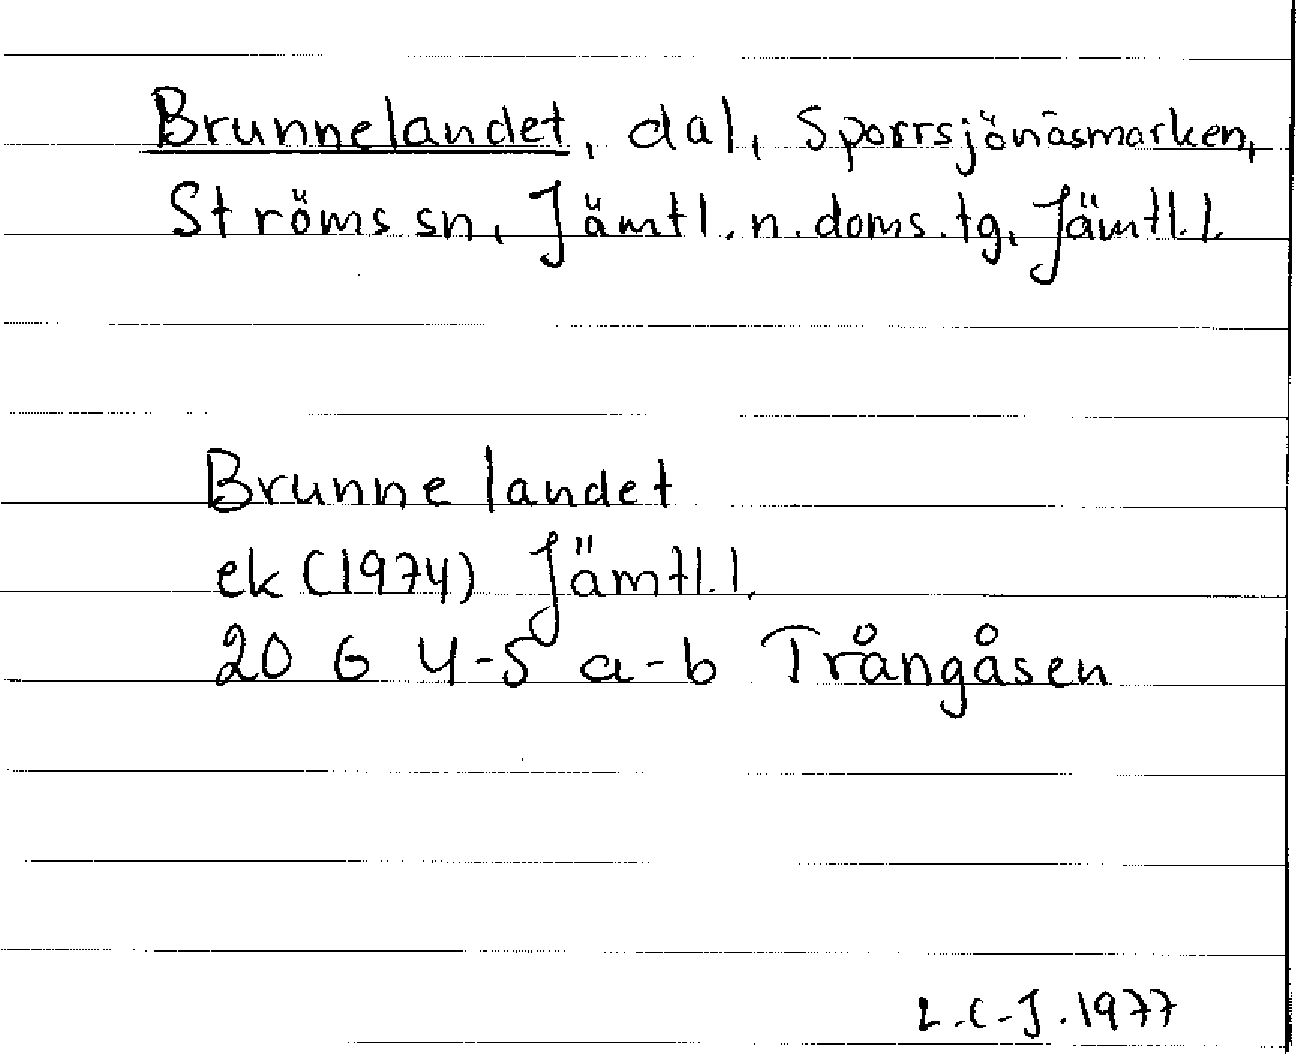 Brunnelandet, dal, Sporrsjönäsmarken,
Ströms sn, Jämtl. n. doms. tg, Jämtl. l.
Brunnelandet
ek (1974) Jämtl. l.
20 G 4-5 a-b Trångåsen
L.C-J. 1977